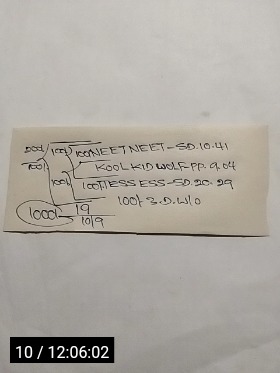 200/ 100/ 100/NEETNEET-SD.10.41
100/ KOOLKIDWOLF-PP.9.04
100/ 100/TESSESS-SD.20.29
100/ S.D.W/O
1000/- 19
10/9
10 / 12:06:02